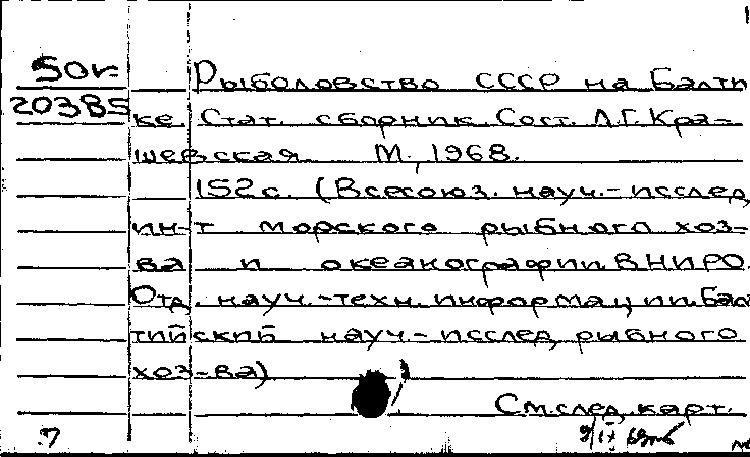 50г Рыболовство СССР на Балти
20385 ке. Стат. сборник. Сост. Л.Г. Кра-
шевская. М., 1968.
152 с. (Всесоюз. науч.-исслед.
ин-т морского рыбного хоз-
ва и океанографии. ВНИРО.
Отд. науч.-техн. информации. Бал
тийский науч.-исслед. рыбного
хоз-ва)
См. след. карт.